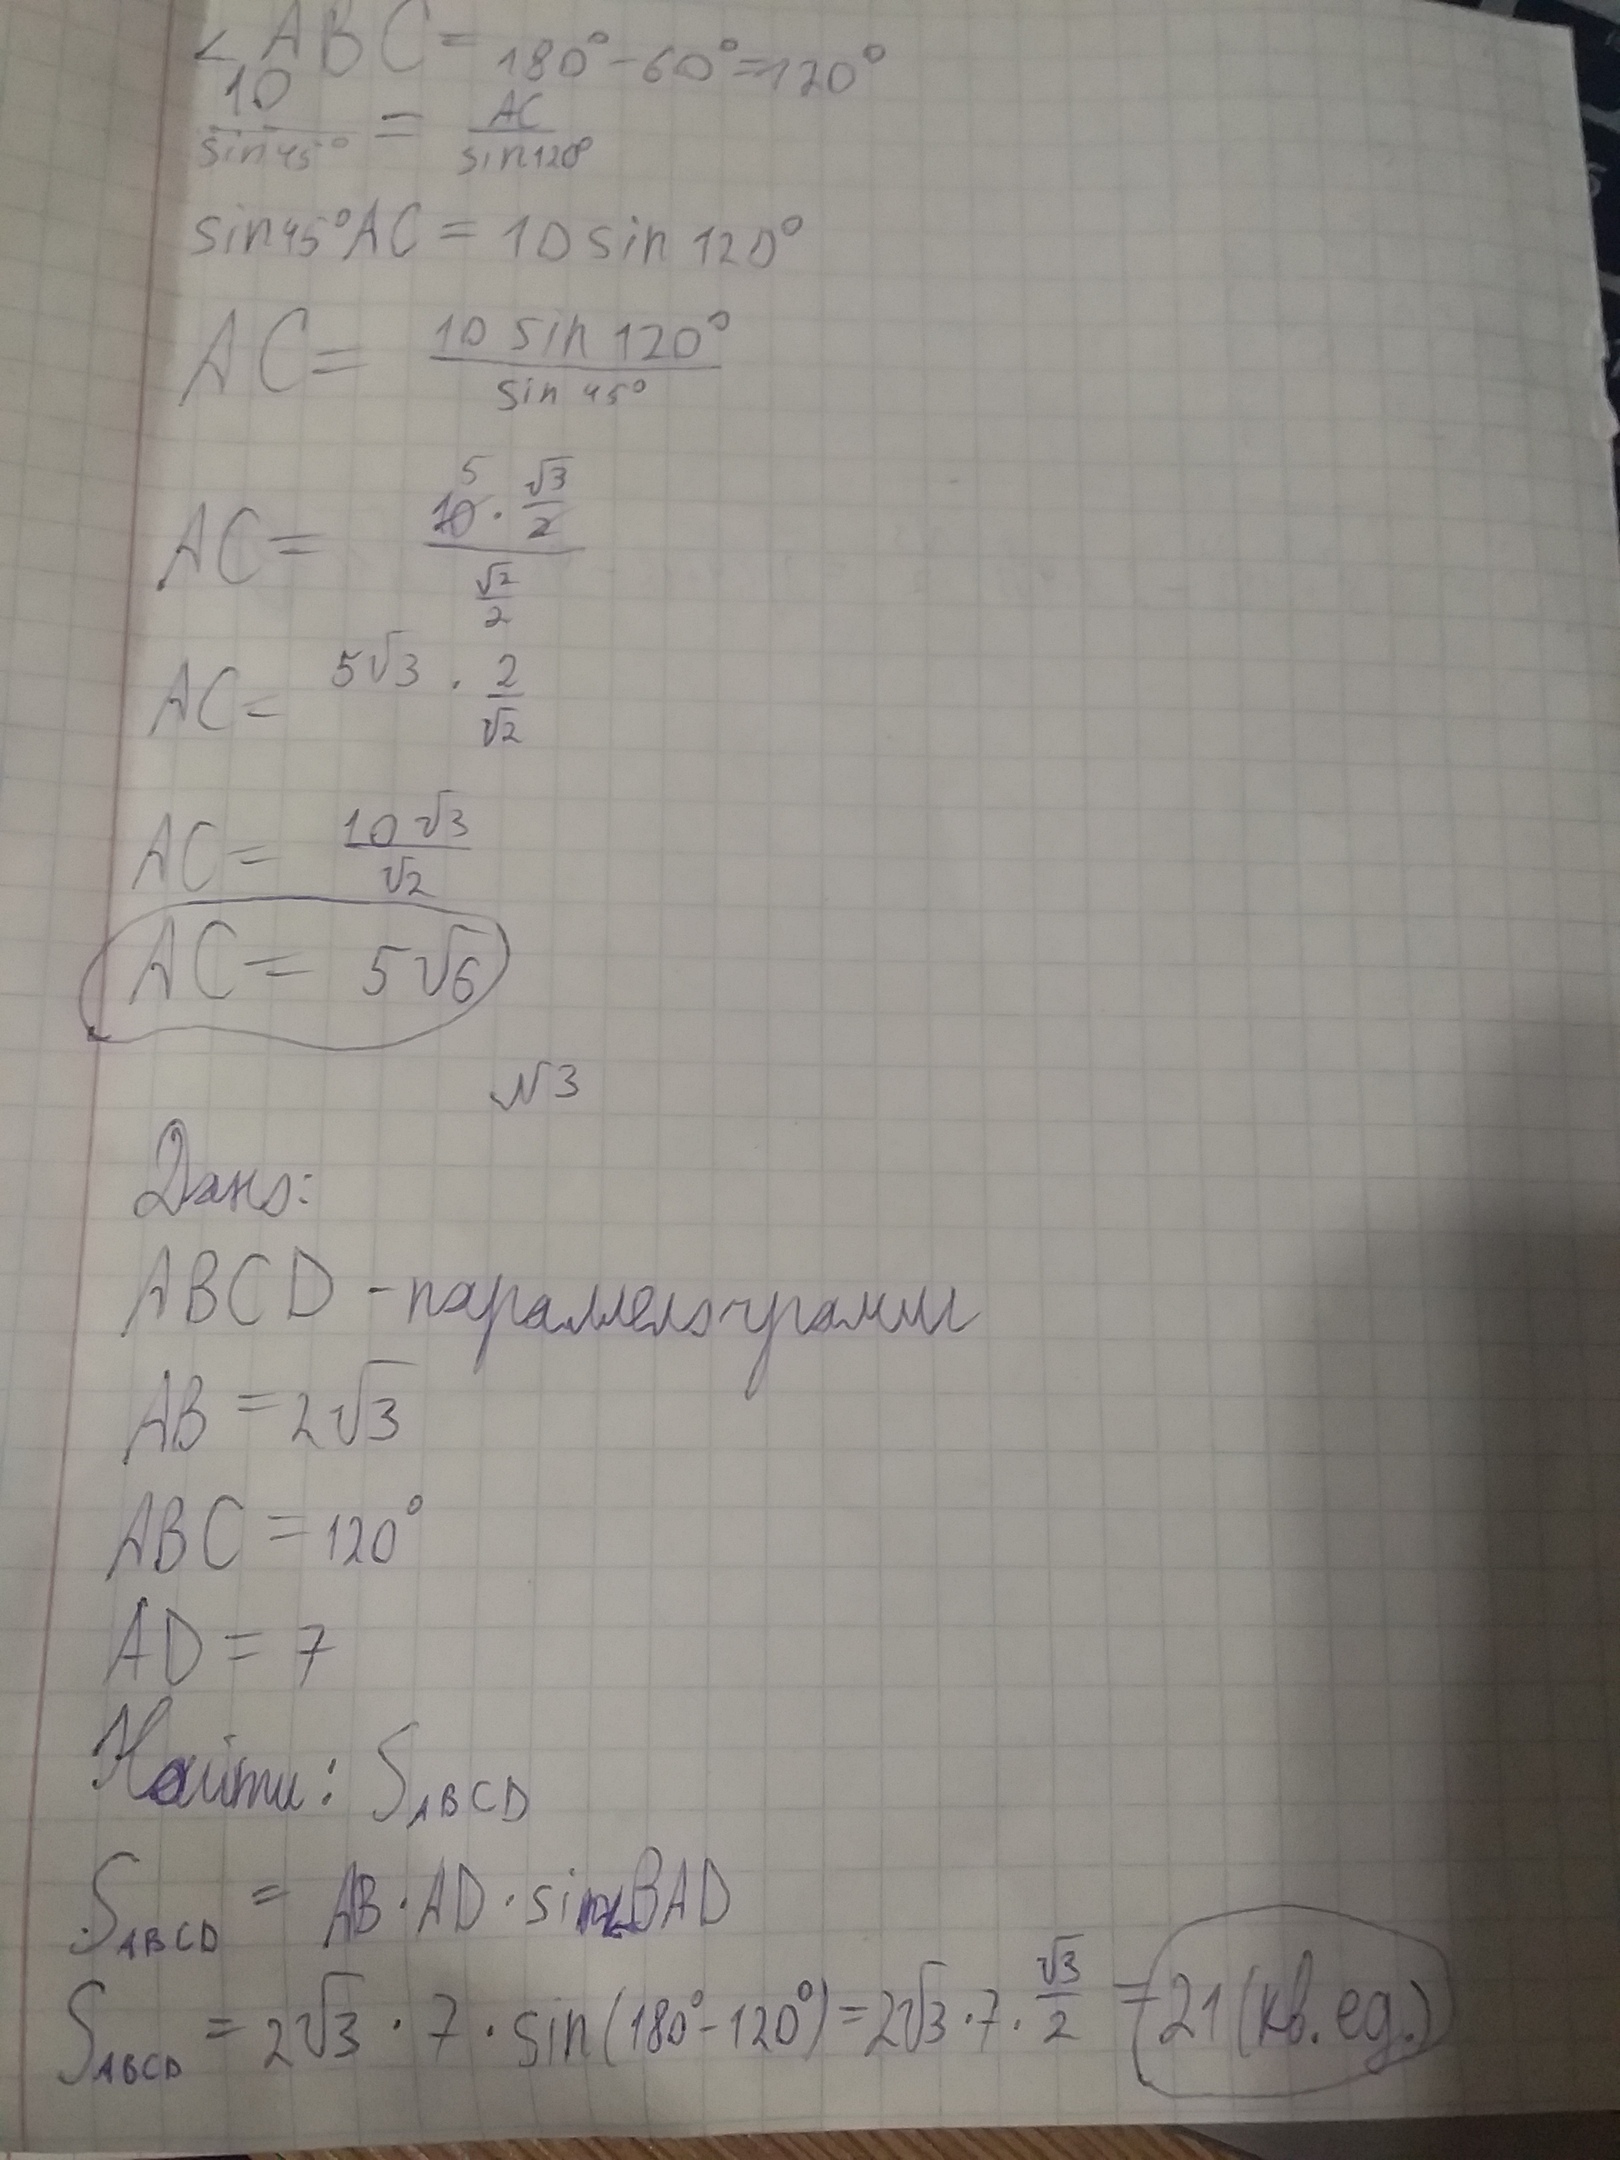 ∠ABC = 180° - 60° = 120°
10/sin45° = AC/sin120°
sin45°AC = 10 sin 120°
AC = 10 sin 120°/sin 45°
5
AC = (10 · √3/2)/(√2/2)
AC = 5√3 · 2/√2
AC = 10√3/√2
AC = 5√6
№3
Дано:
ABCD - параллелограмм
AB = 2√3
ABC = 120°
AD = 7
Найти: S ABCD
S ABCD = AB · AD · sin∠BAD
S ABCD = 2√3 · 7 · sin(180° - 120°) = 2√3 · 7 · √3/2 = 21 (кв. ед.)